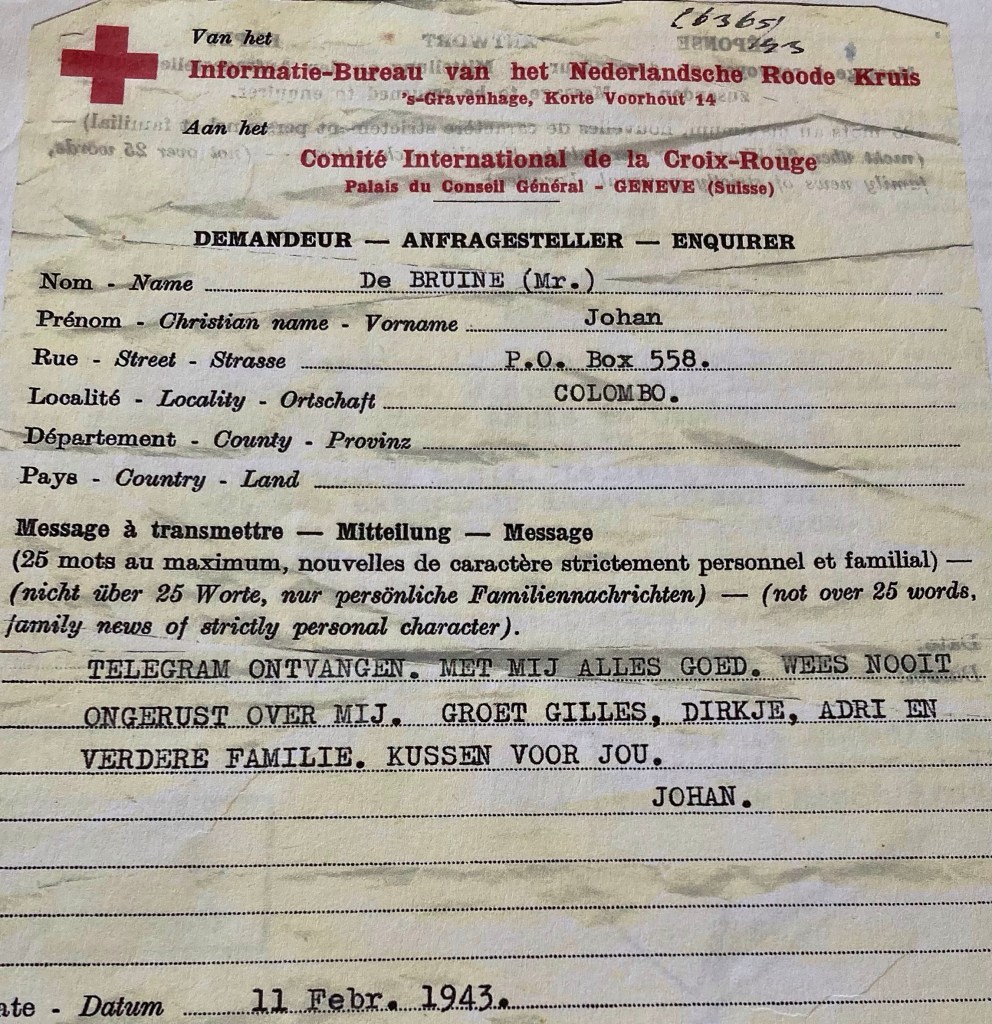 Van het
Informatie-Bureau van het Nederlandsche Roode Kruis
's-Gravenhage, Korte Voorhout 14
Aan het
Comité International de la Croix-Rouge
Palais du Conseil Général - GENEVE (Suisse)
DEMANDEUR — ANFRAGESTELLER — ENQUIRER
Nom - Name De BRUINE (Mr.)
Prénom - Christian name - Vorname Johan
Rue - Street - Strasse P.O. Box 558.
Localité - Locality - Ortschaft COLOMBO.
Département - County - Provinz
Pays - Country - Land
Message à transmettre — Mitteilung — Message
(25 mots au maximum, nouvelles de caractère strictement personnel et familial) —
(nicht über 25 Worte, nur persönliche Familiennachrichten) — (not over 25 words,
family news of strictly personal character).
TELEGRAM ONTVANGEN. MET MIJ ALLES GOED. WEES NOOIT
ONGERUST OVER MIJ. GROET GILLES, DIRKJE, ADRI EN
VERDERE FAMILIE. KUSSEN VOOR JOU.
JOHAN.
ate - Datum 11 Febr. 1943.